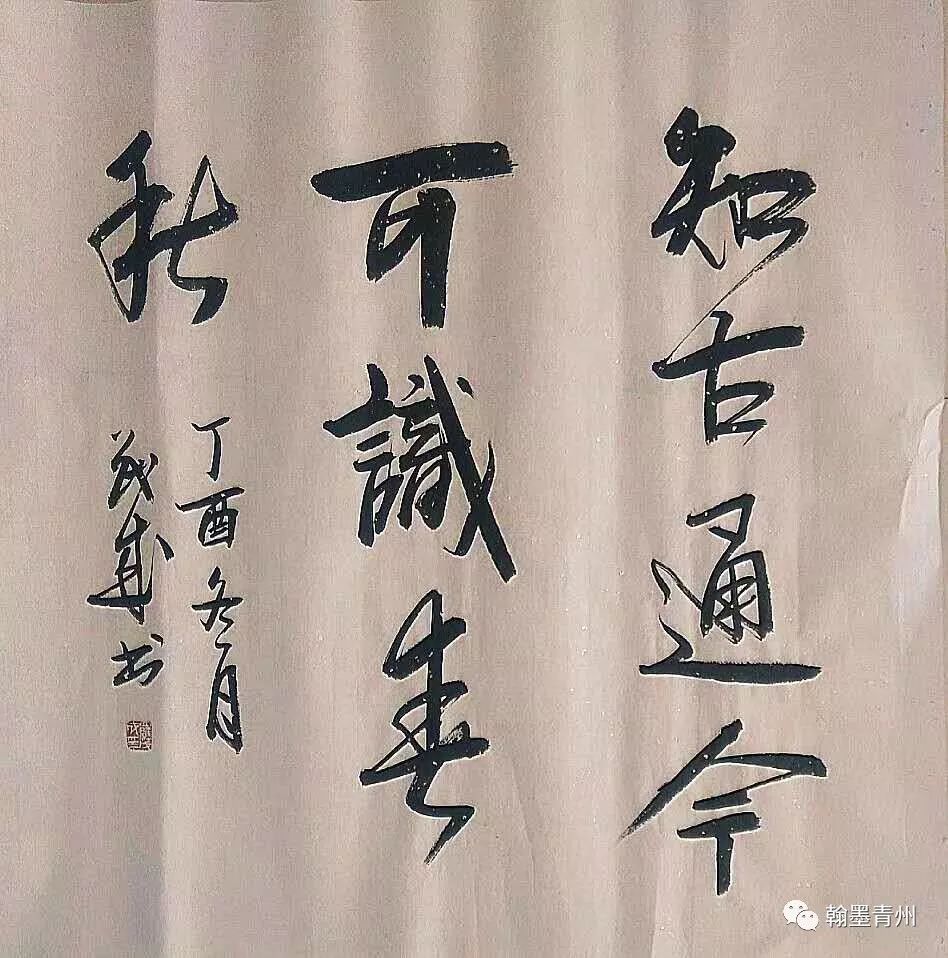 知古通今
可識春
秋
丁酉冬月
茂成书
翰墨青州